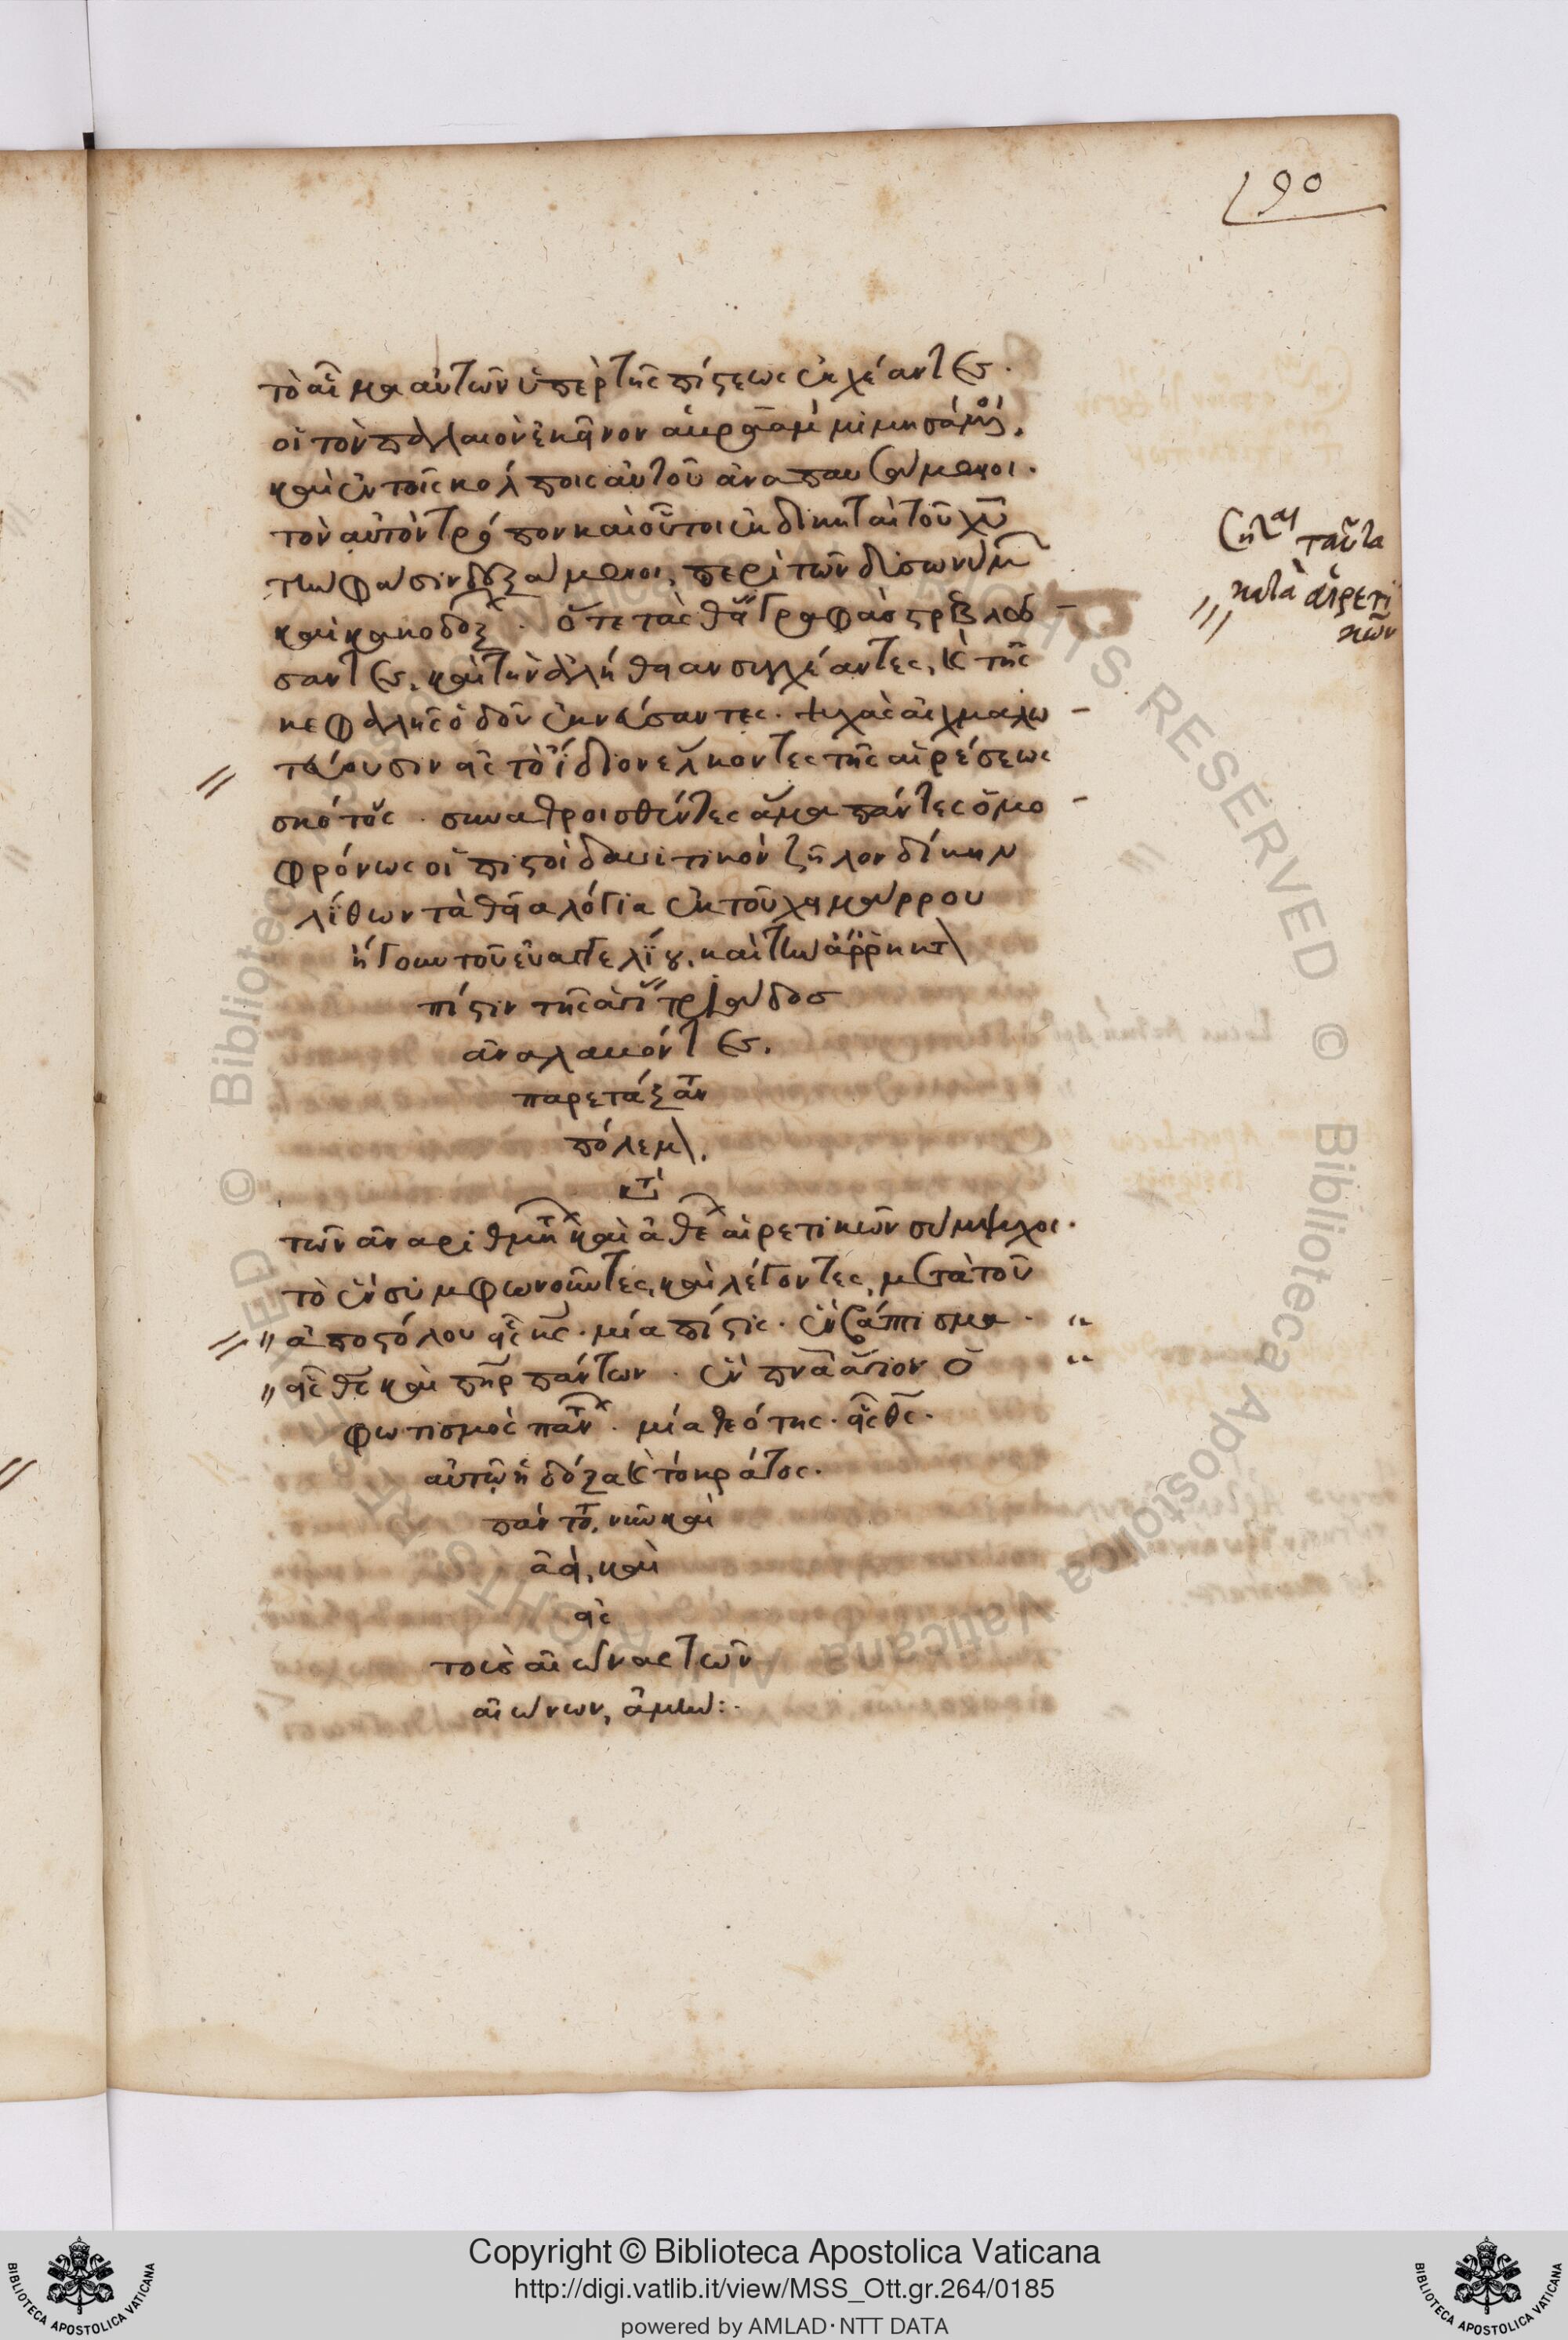 190
τὸ αἷμα αὐτῶν ὑπὲρ τῆς πίστεως ἐκχέαντες.
οἱ τὸν παλαιὸν ἐκεῖνον ἁβραὰμ μιμησάμενοι,
καὶ ἐν τοῖς κόλποις αὐτοῦ ἀναπαυόμενοι.
τὸν αὐτὸν τρόπον καὶ οὗτοι ἐκδικηταὶ τοῦ χῦ
τὴν φύσιν δοξαζόμενοι, περὶ τῶν δισωνύμων
καὶ κακοδόξων. οἵτε τὰς θείας γραφὰς στρεβλώ
σαντες, καὶ τὴν ἀλήθειαν συγχέαντες, καὶ τῆς
κεφαλῆς ὁδὸν ἐκνεύσαντες. ψυχὰς αἰχμαλω
τεύουσιν εἰς τὸ ἴδιον ἕλκοντες τῆς αἱρέσεως
σκότος. συναθροισθέντες ἅμα πάντες ὁμο
φρόνως οἱ πιστοὶ δαυιτικὸν ζῆλον δίκην
λίθων τὰ θεῖα λόγια ἐκ τοῦ χειμάρρου
ἤγουν τοῦ εὐαγγελίου, καὶ τὴν ἄρρηκτον
πίστιν τῆς ἁγίας τριάδος
ἀναλαβόντες.
παρετάξαντο
πόλεμον.
κατὰ
τῶν ἀναριθμήτων καὶ ἀθέων αἱρετικῶν σύμψυχοι.
τὸ ἓν συμφωνοῦντες, καὶ λέγοντες, μετὰ τοῦ
ἀποστόλου εἷς κς. μία πίστις. ἓν βάπτισμα.
εἷς θς καὶ πηρ πάντων. ἓν πνα ἅγιον ὁ
φωτισμὸς πάντων. μία θεότης. εἷς θς.
αὐτῷ ἡ δόξα καὶ τὸ κράτος.
πάντοτε, νῦν καὶ
ἀεί, καὶ
εἰς
τοὺς αἰῶνας τῶν
αἰώνων, ἀμήν:-
ταῦτα
κατὰ αἱρετι
κῶν
Copyright © Biblioteca Apostolica Vaticana
http://digi.vatlib.it/view/MSS_Ott.gr.264/0185
powered by AMLAD·NTT DATA
BIBLIOTECA APOSTOLICA VATICANA
BIBLIOTECA APOSTOLICA VATICANA